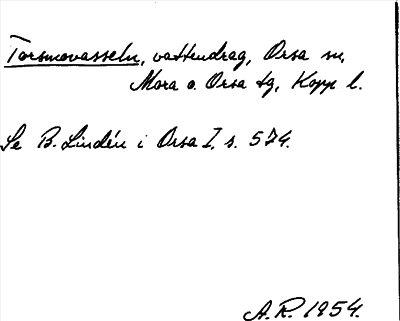 Torsmovasseln, vattendrag, Orsa sn,
Mora o. Orsa tg, Kopp l.
Se B. Lindén i Orsa I, s. 574.
A. R. 1954.